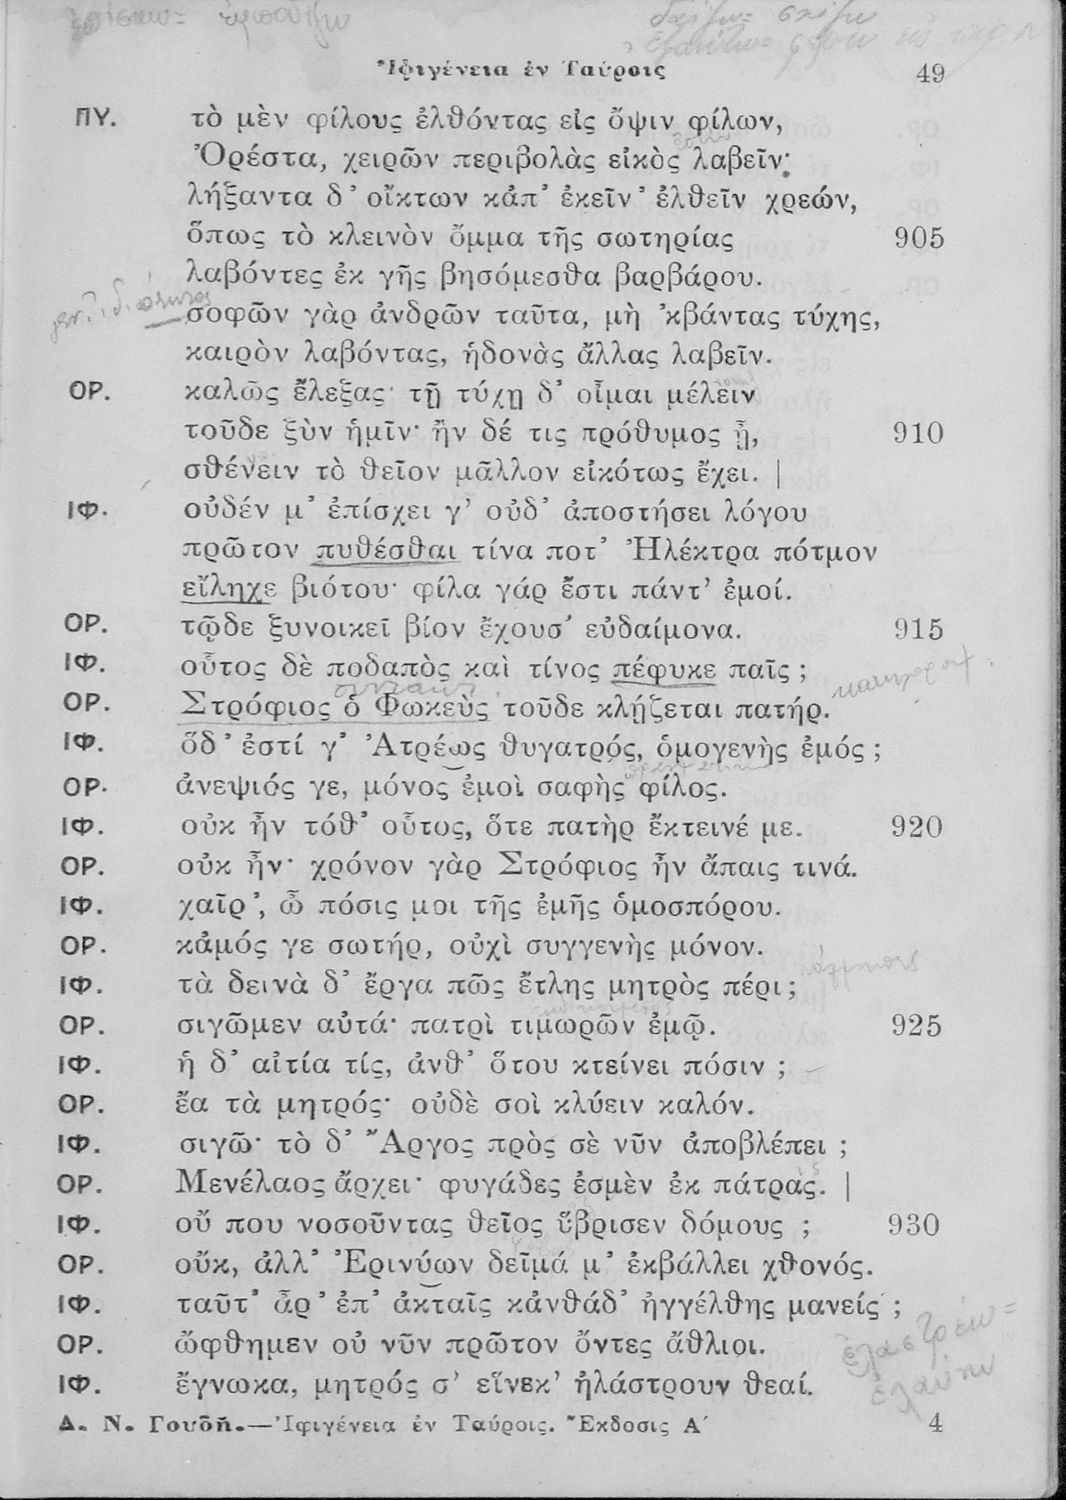 Ἰφιγένεια ἐν Ταύροις 49
ΠΥ. τὸ μὲν φίλους ἐλθόντας εἰς ὄψιν φίλων,
Ὀρέστα, χειρῶν περιβολὰς εἰκὸς λαβεῖν·
λήξαντα δ' οἴκτων κἀπ' ἐκεῖν' ἐλθεῖν χρεών,
ὅπως τὸ κλεινὸν ὄμμα τῆς σωτηρίας 905
λαβόντες ἐκ γῆς βησόμεσθα βαρβάρου.
σοφῶν γὰρ ἀνδρῶν ταῦτα, μὴ 'κβάντας τύχης,
καιρὸν λαβόντας, ἡδονὰς ἄλλας λαβεῖν.
ΟΡ. καλῶς ἔλεξας· τῇ τύχῃ δ' οἶμαι μέλειν
τοῦδε ξὺν ἡμῖν· ἢν δέ τις πρόθυμος ᾖ, 910
σθένειν τὸ θεῖον μᾶλλον εἰκότως ἔχει. |
ΙΦ. οὐδέν μ' ἐπίσχει γ' οὐδ' ἀποστήσει λόγου
πρῶτον πυθέσθαι τίνα ποτ' Ἠλέκτρα πότμον
εἴληχε βιότου· φίλα γάρ ἔστι πάντ' ἐμοί.
ΟΡ. τῷδε ξυνοικεῖ βίον ἔχουσ' εὐδαίμονα. 915
ΙΦ. οὗτος δὲ ποδαπὸς καὶ τίνος πέφυκε παῖς ;
ΟΡ. Στρόφιος ὁ Φωκεὺς τοῦδε κλῄζεται πατήρ.
ΙΦ. ὅδ' ἐστί γ' Ἀτρέως θυγατρός, ὁμογενὴς ἐμός ;
ΟΡ. ἀνεψιός γε, μόνος ἐμοὶ σαφὴς φίλος.
ΙΦ. οὐκ ἦν τόθ' οὗτος, ὅτε πατὴρ ἔκτεινέ με. 920
ΟΡ. οὐκ ἦν· χρόνον γὰρ Στρόφιος ἦν ἄπαις τινά.
ΙΦ. χαῖρ', ὦ πόσις μοι τῆς ἐμῆς ὁμοσπόρου.
ΟΡ. κἀμός γε σωτήρ, οὐχὶ συγγενὴς μόνον.
ΙΦ. τὰ δεινὰ δ' ἔργα πῶς ἔτλης μητρὸς πέρι ;
ΟΡ. σιγῶμεν αὐτά· πατρὶ τιμωρῶν ἐμῷ. 925
ΙΦ. ἡ δ' αἰτία τίς, ἀνθ' ὅτου κτείνει πόσιν ;
ΟΡ. ἔα τὰ μητρός· οὐδὲ σοὶ κλύειν καλόν.
ΙΦ. σιγῶ· τὸ δ' Ἄργος πρὸς σὲ νῦν ἀποβλέπει ;
ΟΡ. Μενέλαος ἄρχει· φυγάδες ἐσμὲν ἐκ πάτρας. |
ΙΦ. οὔ που νοσοῦντας θεῖος ὕβρισεν δόμους ; 930
ΟΡ. οὔκ, ἀλλ' Ἐρινύων δεῖμά μ' ἐκβάλλει χθονός.
ΙΦ. ταῦτ' ἆρ' ἐπ' ἀκταῖς κἀνθάδ' ἠγγέλθης μανείς ;
ΟΡ. ὤφθημεν οὐ νῦν πρῶτον ὄντες ἄθλιοι.
ΙΦ. ἔγνωκα, μητρός σ' εἵνεκ' ἠλάστρουν θεαί.
ἐλαστρέω =
ἐλαύνω
Δ. Ν. Γουδῆ.—Ἰφιγένεια ἐν Ταύροις. Ἔκδοσις Α´ 4